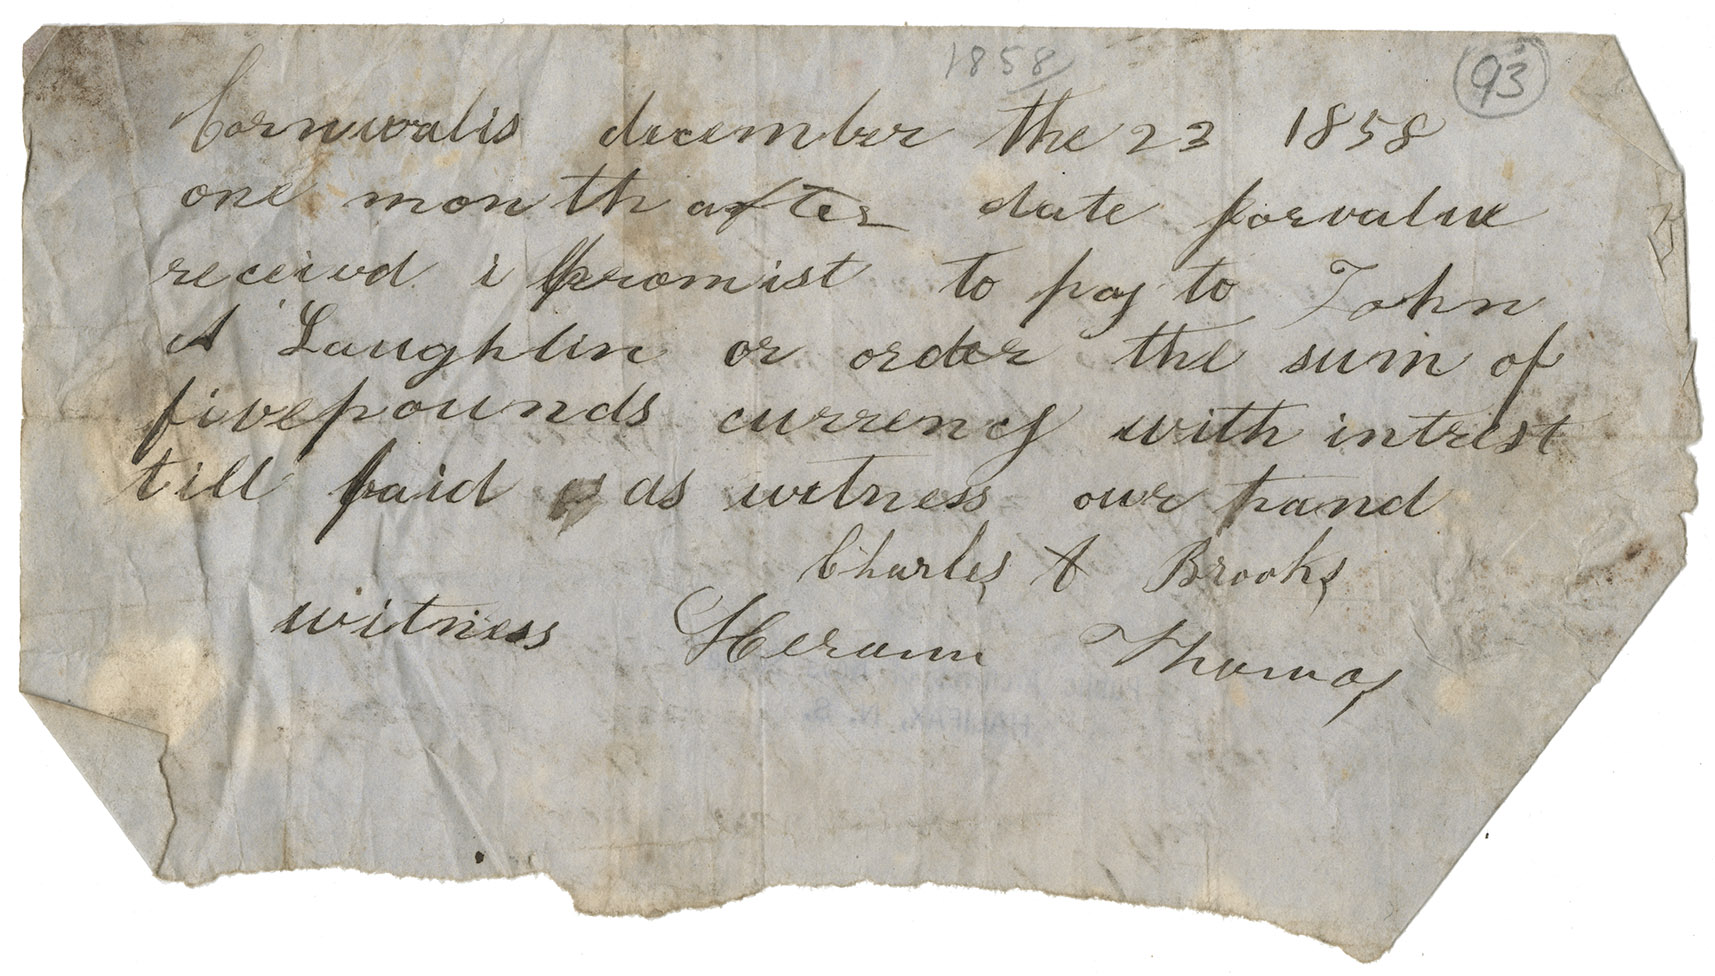 1858
93
Cornwalis december the 23 1858
one month after date for value
receivd i promist to pay to John
A Laughlin or order the sum of
five pounds currency with intrest
till paid as witness our hand
Charles A Brooks
witness Heramn Thomas
HALIFAX, N. S.